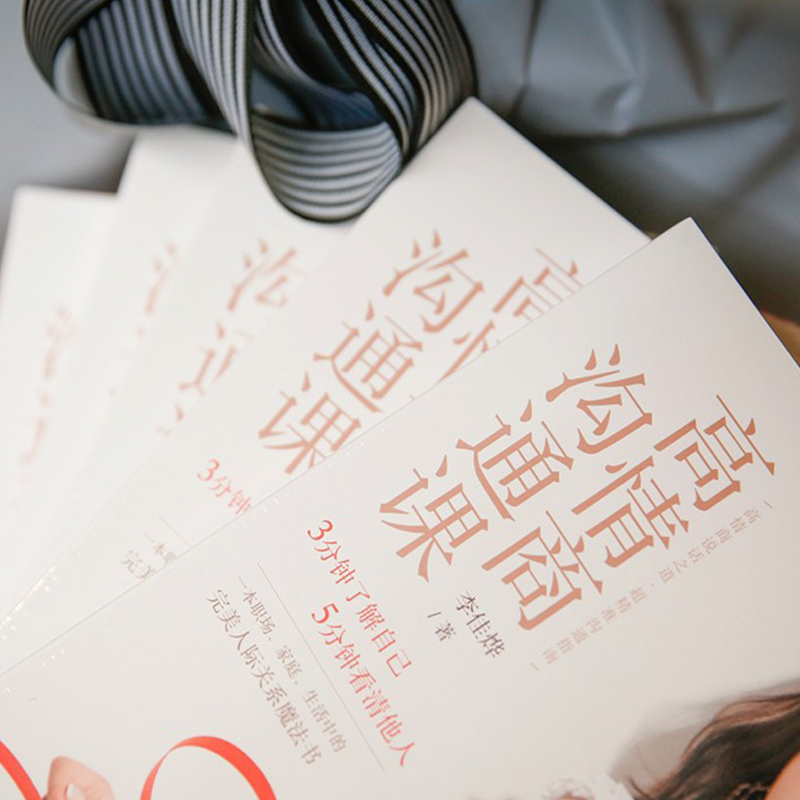 高情商
沟通课
高情商说话之道·超精准沟通指南
李佳烨
/著
3分钟了解自己
5分钟看清他人
一本职场、家庭、生活中的
完美人际关系魔法书
高情
沟通课
3分钟
一本职
完美
沟通